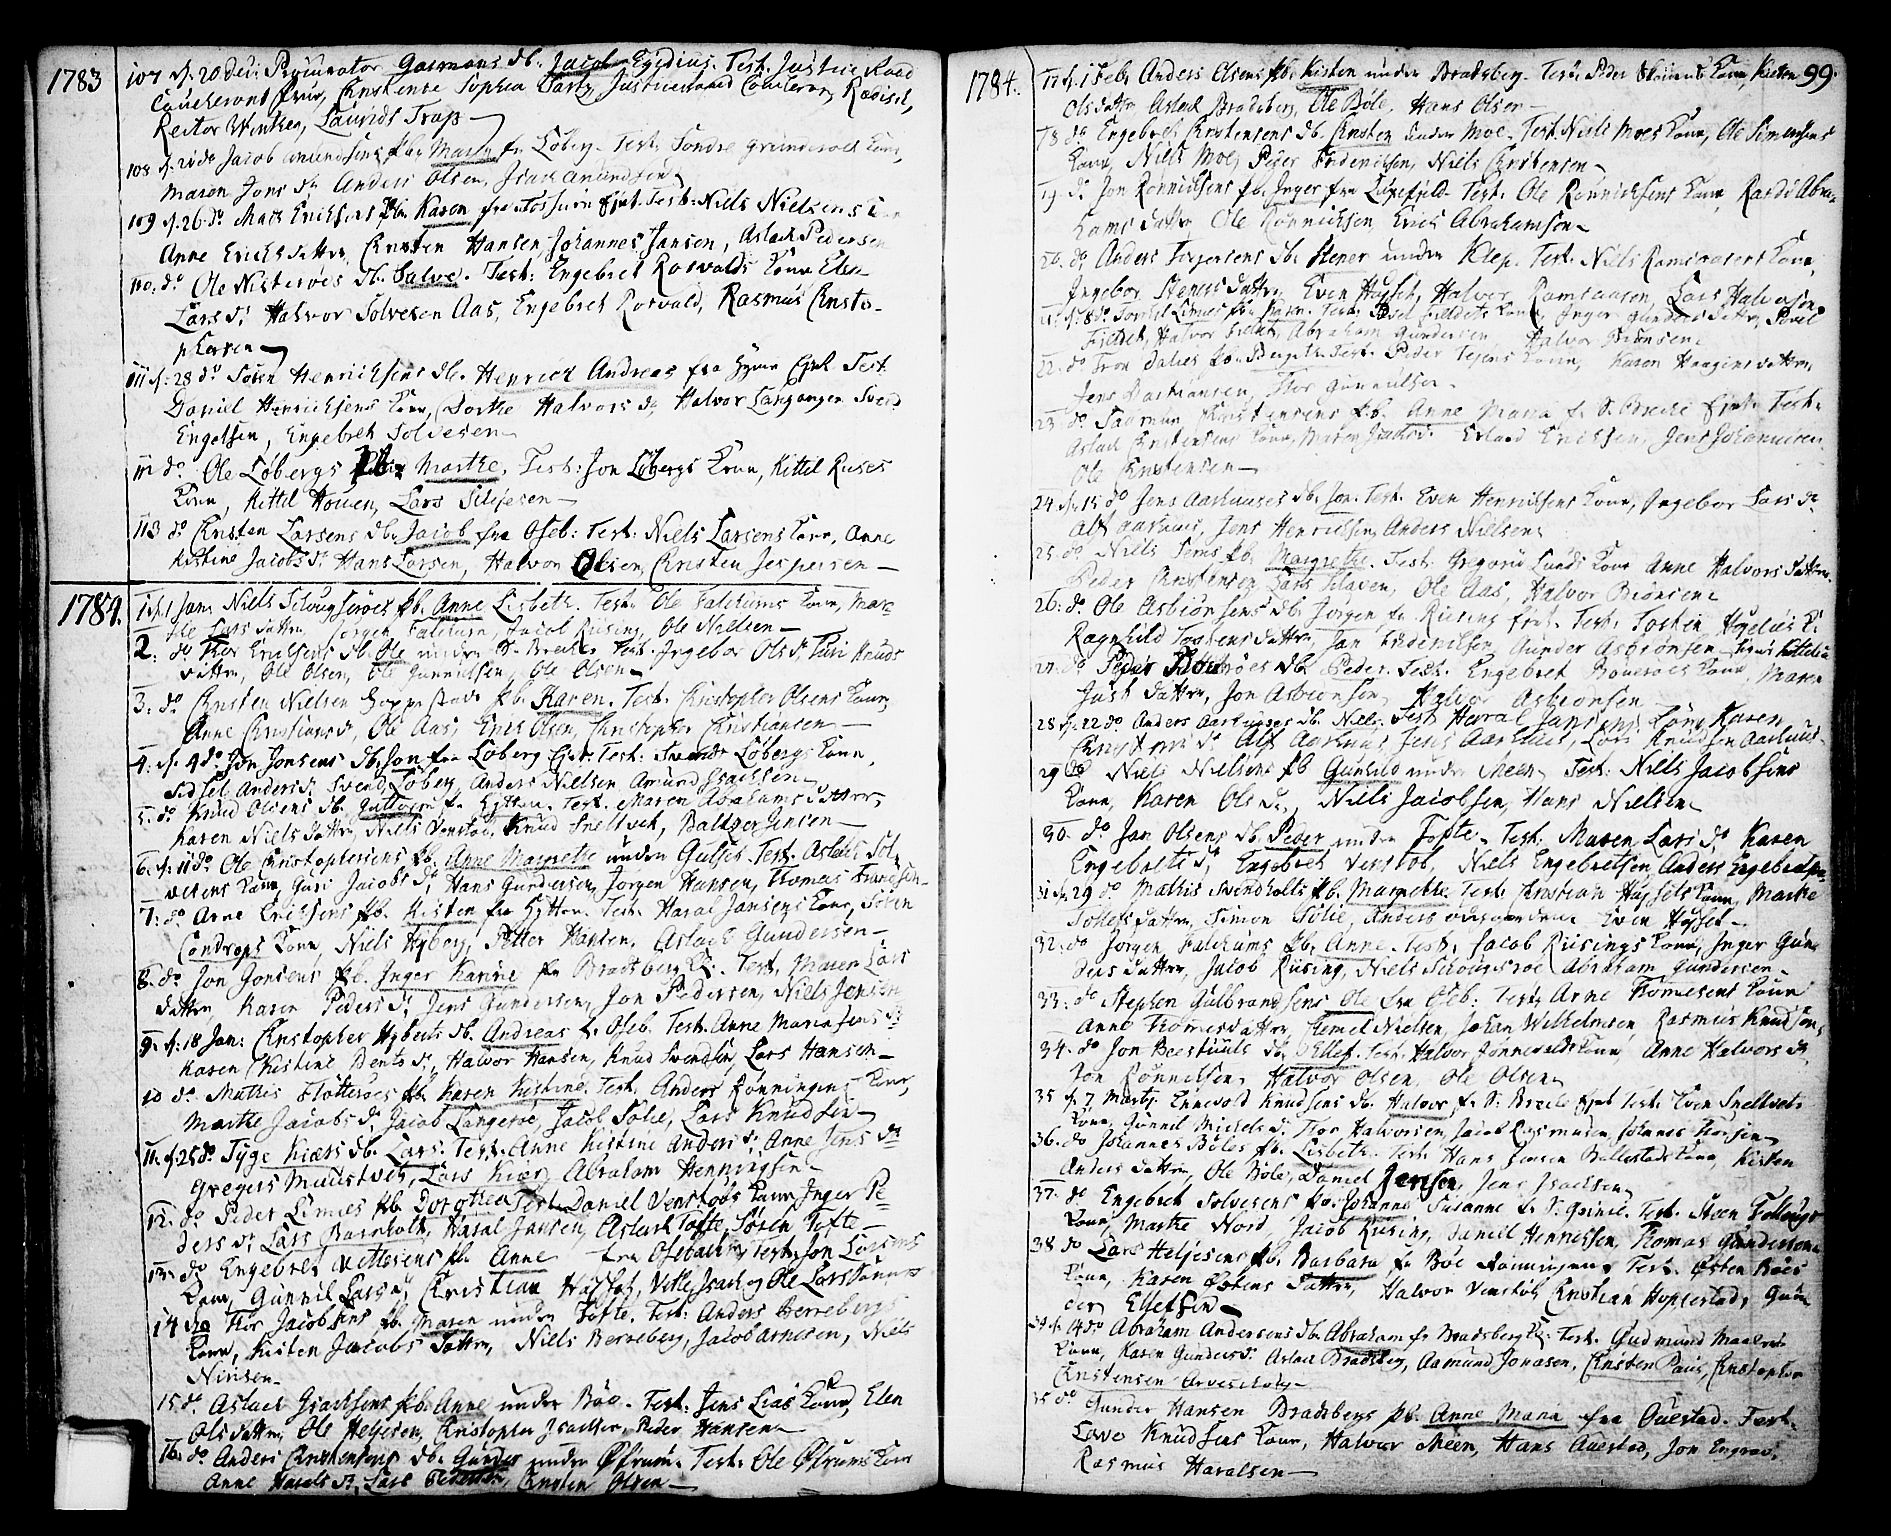 1783
107 d. 20 Dec: Procurator Gaarmans db. Jacob Egidius. Test. Justice Raad
Frue, Christense Sophia Bartz, Justiceraad
Rector Winther, Laurids Trap
108 d. 21 do Jacob Amundsens pb. Marthe fr Löberg. Test. Sondre Grunderoed Kone,
Maren Jons dr. Anders Olsen, Isach Amundsen
109 d. 26 do Mats Erichsens pb. Karen fra Fossum Ejet. Test. Niels Nielsens Kone
Anne Erichsdatter, Christen Hansen, Johannes Jansen, Aslach Pedersen
110. do Ole Nisteroes db. Salve. Test: Engebret Rosvalds Kone Elen
Lars dr Halvor Solvesen Aas, Engebret Rosvald, Rasmus Christo-
phersen
111 d. 28 do Søren Henrichsens db. Henrich Andreas fra Gjet Test
Daniel Henrichsens Kone, Dorthe Halvors dr Halvor Langangen Svend
Engelsen, Engebret Solvesen
112 do Ole Löbergs pb. Marthe. Test: Jon Löbergs Kone, Kittil Ruses
Kone, Kittil Houen, Lars
113 do Christen Larsens db. Jacob fra Oseb: Test: Niels Larsens Kone, Anne
Kistine Jacobs dr Hans Larsen, Halvor Olsen, Christen Jespersen
1784.
1 d. 1 Jan. Niels Schougsroes pb. Anne Lisbeth. Test. Ole Falchums Kone, Mar-
the Lars datter, Jørgen Falchum, Jacob Riising, Ole Nielsen
2. do Thor Erichsens db. Ole under Brecke Test. Ingebor Ols dr Turi Knuds
datter, Ole Olsen, Ole Gunnilsen, Ole Olsen
3. do Christen Nielsen Hoppestads pb. Karen. Test. Christopher Olsens Kone
Anne Christians dr, Ole Aas, Erich Olsen, Christopher Christiansen
4. d. 4 do Jon Jonsens db. Jon fra Löberg Ejet. Test: Svends Löbergs Kone,
Sidsel Anders dr Svend Löberg, Anders Nielsen Amund Isachsen
5. do Knud Olsens db. Guttorm fr Hytten. Test. Maren Abrahams datter,
Karen Niels datter, Niels Venstøe, Knud Snelltvet, Baltzer Jensen
6. d. 11 do Ole Christophersens pb. Anne Margrethe under Gulset Test. Aslach Sol-
vesens Kone, Guri Jacobs dr, Hans Gundersen, Jørgen Hansen, Thomas Franson
7. do Arne Erichsens pb. Kisten fra Hytten. Test. Haral Jansens Kone, Søren
Condrups Kone, Niels Hyberg, Petter Hansen, Aslach Gundersen
8. do Jon Jonsens pb. Inger Karine fr Bradsberg Ej. Test. Maren Lars
datter, Karen Peders dr Jens Gundersen, Jon Pedersen, Niels Jensen
9. d. 18 Jan: Christopher Hyberts db. Andreas fr Oseb. Test. Anne Maria Jens dr
Karen Christine Bents dr, Halvor Hansen, Knud Svendsen, Lars Hansen
10 do Mathis Flötteroes pb. Karen Kistine. Test. Anders Rönningens Kone,
Marthe Jacobs dr Jacob Langeroe, Jacob Solie, Lars Knudsen
11. d. 25 do Tyge Kiærs db. Lars. Test. Anne Kistine Anders dr Anne Jens dr
Gregers Muustvet, Lars Kiær, Abraham Henningsen
12. do Peder Limies pb. Dorothea Test. Daniel Venstøbs Kone, Inger Pe-
ders dr Lars Barnholt, Haral Jansen, Aslach Tofte, Søren Tofte
13. do Engebret Vettesens pb. Anne fra Osebachen Test. Jon Larsens
Kone, Gunnil Lars dr, Christian Høsset, Vette Isach og Ole Lars Sönner
14 do Thor Jacobsens pb. Maren under Tofte. Test. Anders Berrebergs
Kone, Kisten Jacobs datter, Niels Berreberg, Jacob Arnesen, Niels
Ninsen
15 do. Aslach Isachsens pb. Anne under Böe. Test. Jens Lies Kone, Elen
Ols datter, Ole Heljesen, Christopher Isachsen, Peder Hansen
16. do Anders Christensens db. Gunder under Øfrum. Test. Ole Øfrums Kone
Anne Harals dr. Lars Pedersen, Christen Olsen
1784.
99.
17 d. 1 Feb: Anders Olsens pb. Kisten under Bradsberg. Test. Peder Kone, Kisten
Olsdatter Aslach Bradsberg, Ole Bøle, Hans Olsen
18 do Engebret Christensens db. Christen under Moe. Test. Niels Moes Kone, Ole Simensens
Kone, Niels Moe, Peder Friderichsen, Niels Christensen
19 do Jon Rönnichsens pb. Inger fra Luxefjeld. Test. Ole Rönnichsens Kone, Randi Abra-
hams datter Ole Rönnichsen, Erich Abrahamsen
20. do Anders Torgersens db. Stener under Klep. Test. Niels Ramsaasens Kone,
Ingebor Steners datter, Even Høyset, Halvor Ramsaasen, Lars Halvorsen
21. d. 8 do Torchil Limies pb. Karen. Test. Povel Fieldets Kone, Inger Gunders datter, Povel
Fieldet, Halvor Fieldet, Abraham Gundersen, Halvor Biönsen
22. do Tron Dales pb. Bergithe. Test. Peder Tejens Kone, Karen Haagens datter,
Jens Bastiansen, Thor Gunnilsen
23 do Saamund Christensens pb. Anne Maria fr S. Brecke Ejet. Test.
Aslach Christensens Kone, Maren Isachs dr. Erland Erichsen, Jens Johannesen
Ole Christensen
24 d. 15 do Jens Aarhuuses db. Jon. Test. Even Henrichsens Kone, Ingebor Lars dr
Alf Aarhuus, Jens Henrichsen Anders Nielsen
25. do Niels Sems pb. Margrethe. Test. Gregorii Lunds Kone Anne Halvors datter
Peder Christensen, Lars Klaven, Ole Aas, Halvor Biönsen
26: do Ole Asbiörnsens db. Jorgen fr Riising Ejet. Test. Tosten K.
Ragnhild Tostens datter, Jan Friderichsen, Gunder Asbiönsen
27. do Peder db. Peder. Test. Engebret Boueroes Kone, Maren
Just datter, Jon Asbiönsen Halvor Asbiönsen
28 d. 22 do Anders Aarhuuses db. Niels. Test. Haral Jansens Kone, Karen
Christens dr Alf Aarhuus, Jens Aarhuus, Lars Knudsen Aarhuus
29 do Niels Nielsens pb Gunhild under Meen Test. Niels Jacobsens
Kone, Karen Ols dr, Niels Jacobsen, Hans Nielsen
30. do Jan Olsens db. Peder under Tofte. Test. Maren Lars dr, Karen
Engebrets dr, Engebret Venstøb, Niels Engebretsen, Anders Engebretsen
31 d. 29 do Mathis Svindholts pb. Margrethe. Test. Christian Høssets Kone, Marthe
Tollefs datter, Simon Solie, Anders Even Høsset
32. do Jørgen Falchums pb. Anne. Test. Jacob Riisings Kone, Inger Gun-
ders datter, Jacob Riising, Niels Schougsroe Abraham Gundersen
33: do Stephen Gulbrandsens Ole fra Oseb: Test. Arne Thomesens Kone
Anne Thomesdatter, Hemel Nielsen, Johan Wilhelmsen Rasmus Knudsen,
34. do Jon Beestuuls db. Ellef. Test. Halvor Jønnevalds Kone, Anne Halvors dr
Jon Rönnilsen, Halvor Olsen, Ole Olsen
35 d. 7 Marty. Enevold Knudsens db. Halvor fr S. Brecke Ejet. Test. Even Snelltvets
Kone, Gunnil Michels dr Thor Halvorsen, Jacob Rasmusen, Johannes Thorsen
36. do Johannes Böles pb. Lisbeth. Test. Hans Jensen Ballestads Kone, Kisten
Anders datter, Ole Böle, Daniel Jensen, Jens Isachsen
37. do Engebret Solvesens pb. Johanne Susanne fr S. Grinie. Test. Steen Tollougs
Kone, Marthe Nord Jacob Riising, Daniel Henrichsen, Thomas Gundersen
38 do Lars Heljesens pb. Barbara fr Böe Rønningen. Test. Østen Böes
Kone, Karen Østens datter, Halvor Venstøb, Christian Hoppestad, Gun-
der Ellefsen
39 d. 14 do Abraham Andersens db. Abraham fr Bradsberg Ej. Test. Gudmund
Kone, Karen Gunders dr Aslach Bradsberg, Aamund Jonasen, Christen Paus, Christopher
Christensen
35 do Gunder Hansen Bradsbergs pb. Anne Maria fra Ouestad. Test.
Lave Knudsens Kone, Halvor Meen, Hans Ouestad, Jon
Rasmus Haralsen